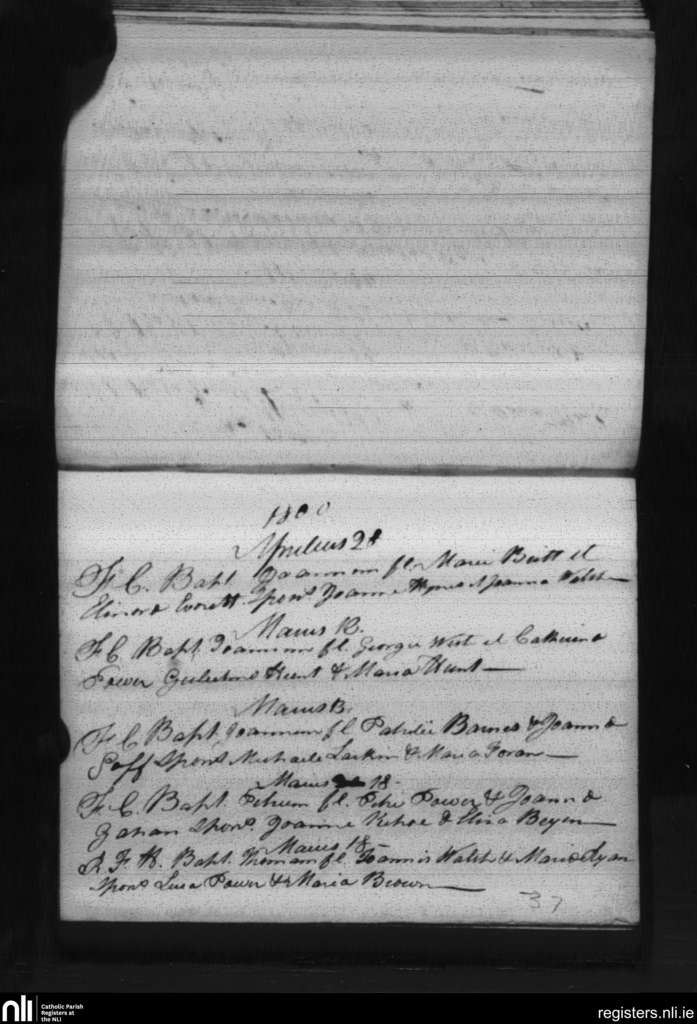 1800
Aprilius 28
F. C. Bapt. Joannem fl. Marii Britt et
Elinora Everett Spons Joanne Hynes & Joanna Walsh
Maius
F C Bapt Joannem fl. Georgii West et Catherina
Power Gulielmo Hunt & Maria Hunt
Maius
F C Bapt Joannem fl Patricii Barnes & Joanna
Goff Spons Michaele Larkin & Maria Foran
Maius 18
F. C. Bapt. Petrum fl. Petri Power & Joanna
Gahan Spons. Joanne Kehoe & Eliza Bryen
Maius 18
R. F. H. Bapt. Thomam fl. Joannis Walsh & Maria Ryan
Spons Luca Power & Maria Brown
37
nli
Catholic Parish
Registers at
the NLI
registers.nli.ie